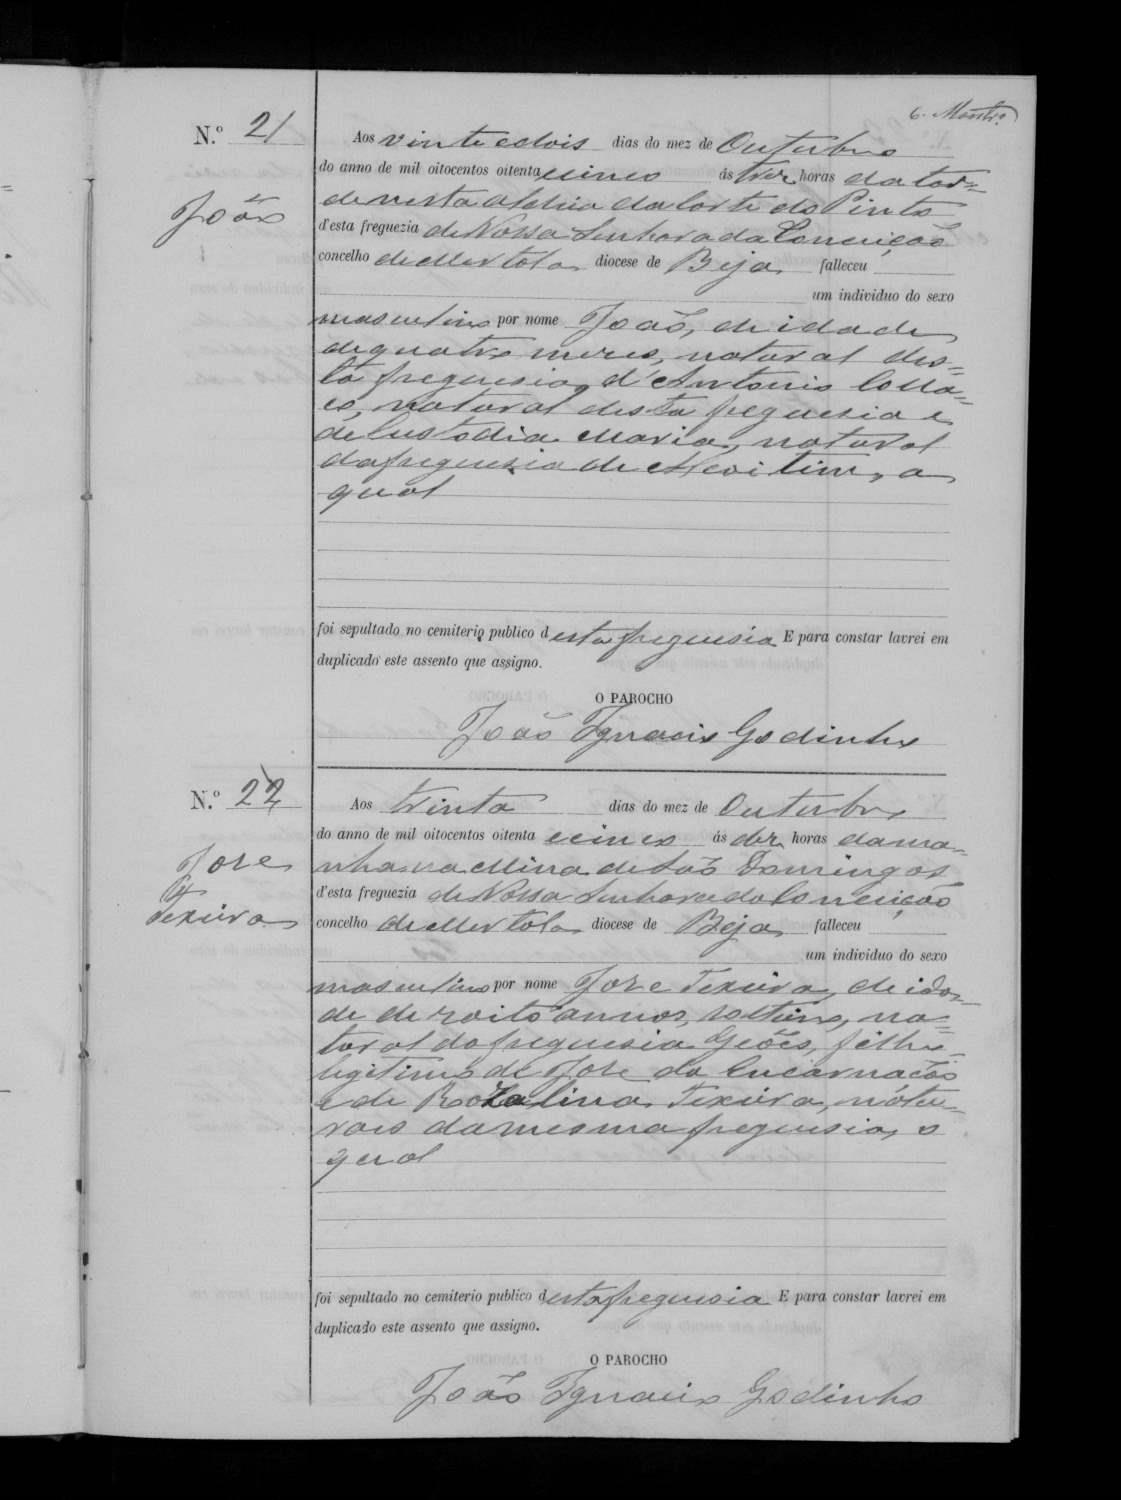 6. Montro.
N.º 21
João
Aos vinte e dois dias do mez de Outubro
do anno de mil oitocentos oitenta e cinco ás trez horas da tar=
de nesta aldeia da Corte do Pinto
d'esta freguezia de Nossa Senhora da Conceição
concelho de Mertola diocese de Beja falleceu
um individuo do sexo
masculino por nome João, de idade
de quatro mezes, natural des=
ta freguesia, d'Antonio Colla=
ço, natural desta freguesia e
de Custodia Maria, natural
da freguesia de Alcoitim, o
qual
foi sepultado no cemiterio publico d esta freguesia E para constar lavrei em
duplicado este assento que assigno.
O PAROCHO
João Ignacio Godinho
N.º 22
Jose
Texeira
Aos trinta dias do mez de Outubro
do anno de mil oitocentos oitenta e cinco ás dez horas da ma=
nha na Mina de São Domingos
d'esta freguezia de Nossa Senhora da Conceição
concelho de Mertola diocese de Beja falleceu
um individuo do sexo
masculino por nome Jose Texeira, de ida=
de dezoito annos, solteiro, na=
tural da freguesia Giões, filho
legitimo de Jose da Encarnação
e de Rozalina Texeira, natu=
raes da mesma freguesia, o
qual
foi sepultado no cemiterio publico d esta freguesia E para constar lavrei em
duplicado este assento que assigno.
O PAROCHO
João Ignacio Godinho